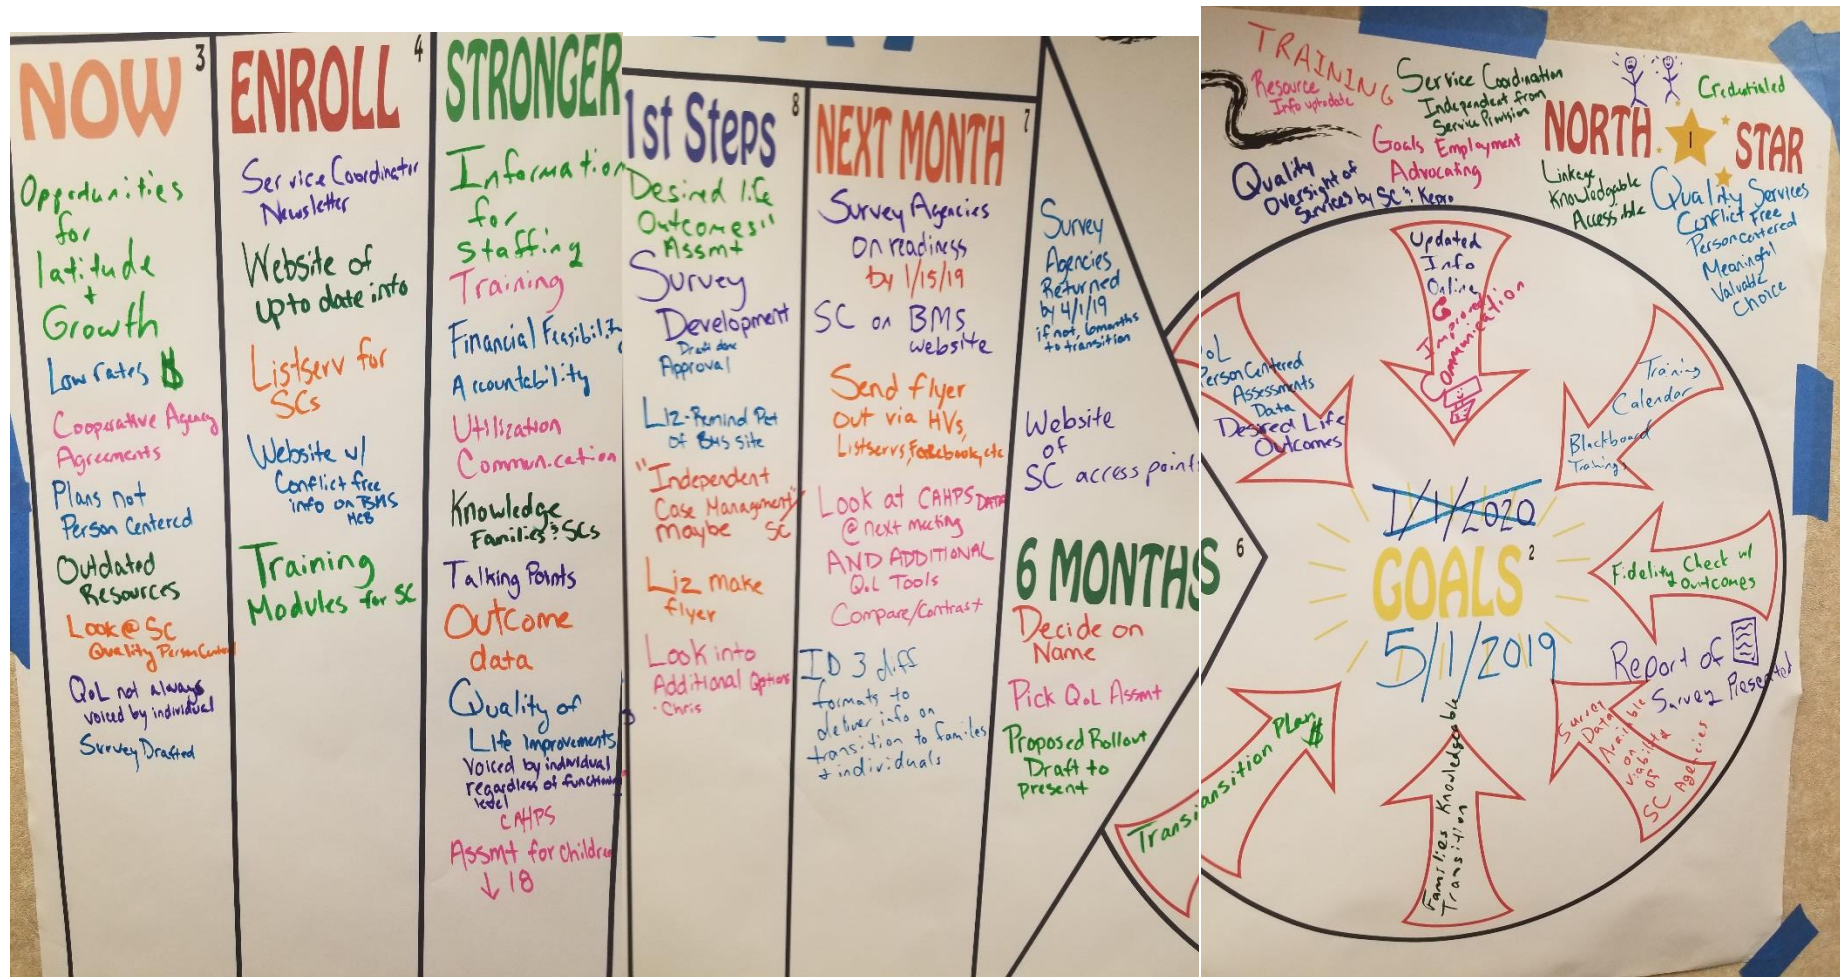 NOW 3
Opportunities
for
latitude
+
Growth
Low rates $
Cooperative Agency
Agreements
Plans not
Person Centered
Outdated
Resources
Look @ SC
Quality Person
QoL not always
voiced by individual
Survey Drafted
ENROLL 4
Service Coordinator
Newsletter
Website of
up to date info
Listserv for
SCs
Website w/
Conflict free
info on BMS
Training
Modules for SC
STRONGER
Information
for
staffing
Training
Financial
Accountability
Utilization
Communication
Knowledge
Families & SCs
Talking Points
Outcome
data
Quality of
Life Improvements
Voiced by individual
regardless of
level
CAHPS
Assmt for children
↓ 18
1st Steps 8
Desired life
Outcomes"
Assmt
Survey
Development
Draft done
Approval
Liz-Remind Pat
of BMS site
"Independent
Case Management"
maybe SC
Liz make
flyer
Look into
Additional Options
- Chris
NEXT MONTH 7
Survey Agencies
on readiness
by 1/15/19
SC on BMS
website
Send flyer
out via HVs,
Listservs, Facebook, etc
Look at CAHPS DATA
@ next meeting
AND ADDITIONAL
QoL Tools
Compare/Contrast
ID 3 diff
formats to
deliver info on
transition to familes
+ individuals
Survey
Agencies
Returned
by 4/1/19
if not, 6 months
to transition
Website
of
SC access point
6 MONTHS 6
Decide on
Name
Pick QoL Assmt
Proposed Rollout
Draft to
present
TRAINING
Resource
Info up to date
Service Coordination
Independent from
Service Provision
Goals Employment
Advocating
Quality
Oversight of
Services by SC & Kepro
Credentialed
NORTH 1 STAR
Linkage
Knowledgeable
Accessible
Quality Services
Conflict Free
Person centered
Meaningful
Valuable
Choice
Updated
Info
Online
Improved
Communication
QoL
Person Centered
Assessments
Data
Desired Life
Outcomes
Training
Calendar
Blackboard
Trainings
1/1/2020
GOALS 2
5/1/2019
Fidelity Check w/
outcomes
Report of
Survey Presented
Survey
Data
Available
on
viability
of
SC Agencies
Families Knowledgeable
Transition
Transition Plan
$